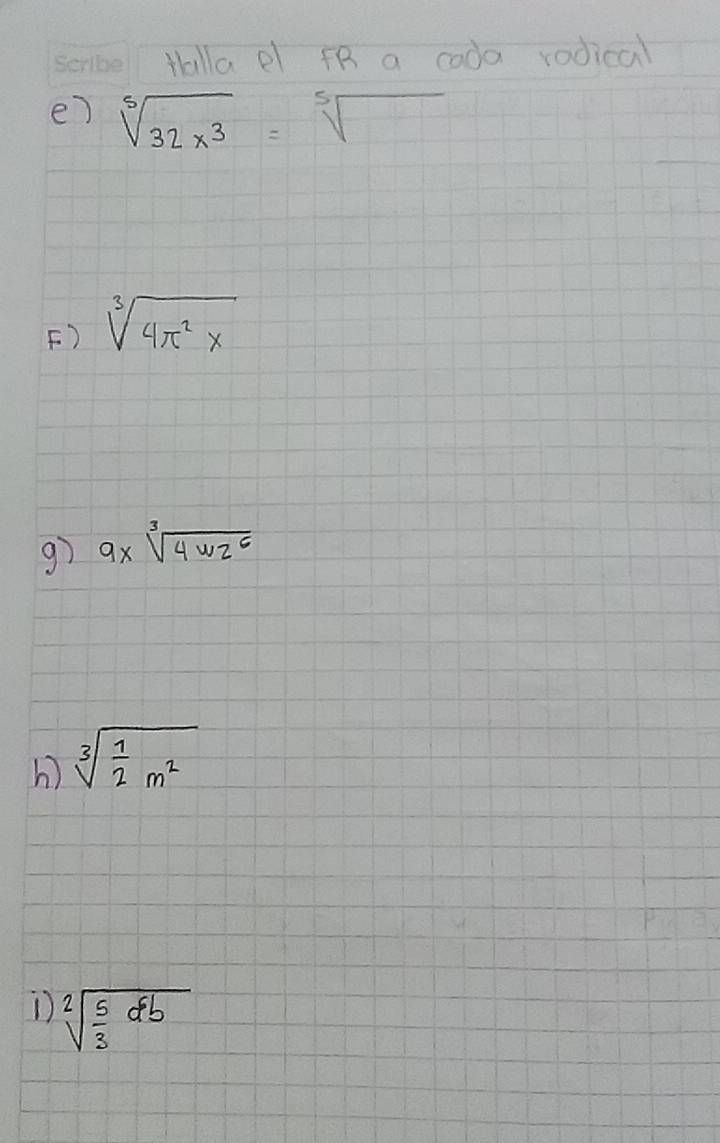 Scribe Halla el FR a cada radical
e) ⁵√32x³ = ⁵√
F) ³√4π² x
g) 9x ³√4wz⁶
h) ³√1/2 m²
i) ²√5/3 db